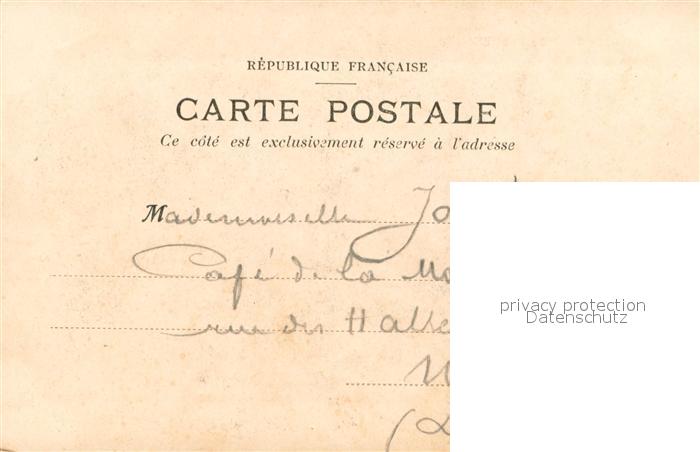 RÉPUBLIQUE FRANÇAISE
CARTE POSTALE
Ce côté est exclusivement réservé à l'adresse
Mademoiselle Jo
Café de la Mo
rue des Halle
privacy protection
Datenschutz